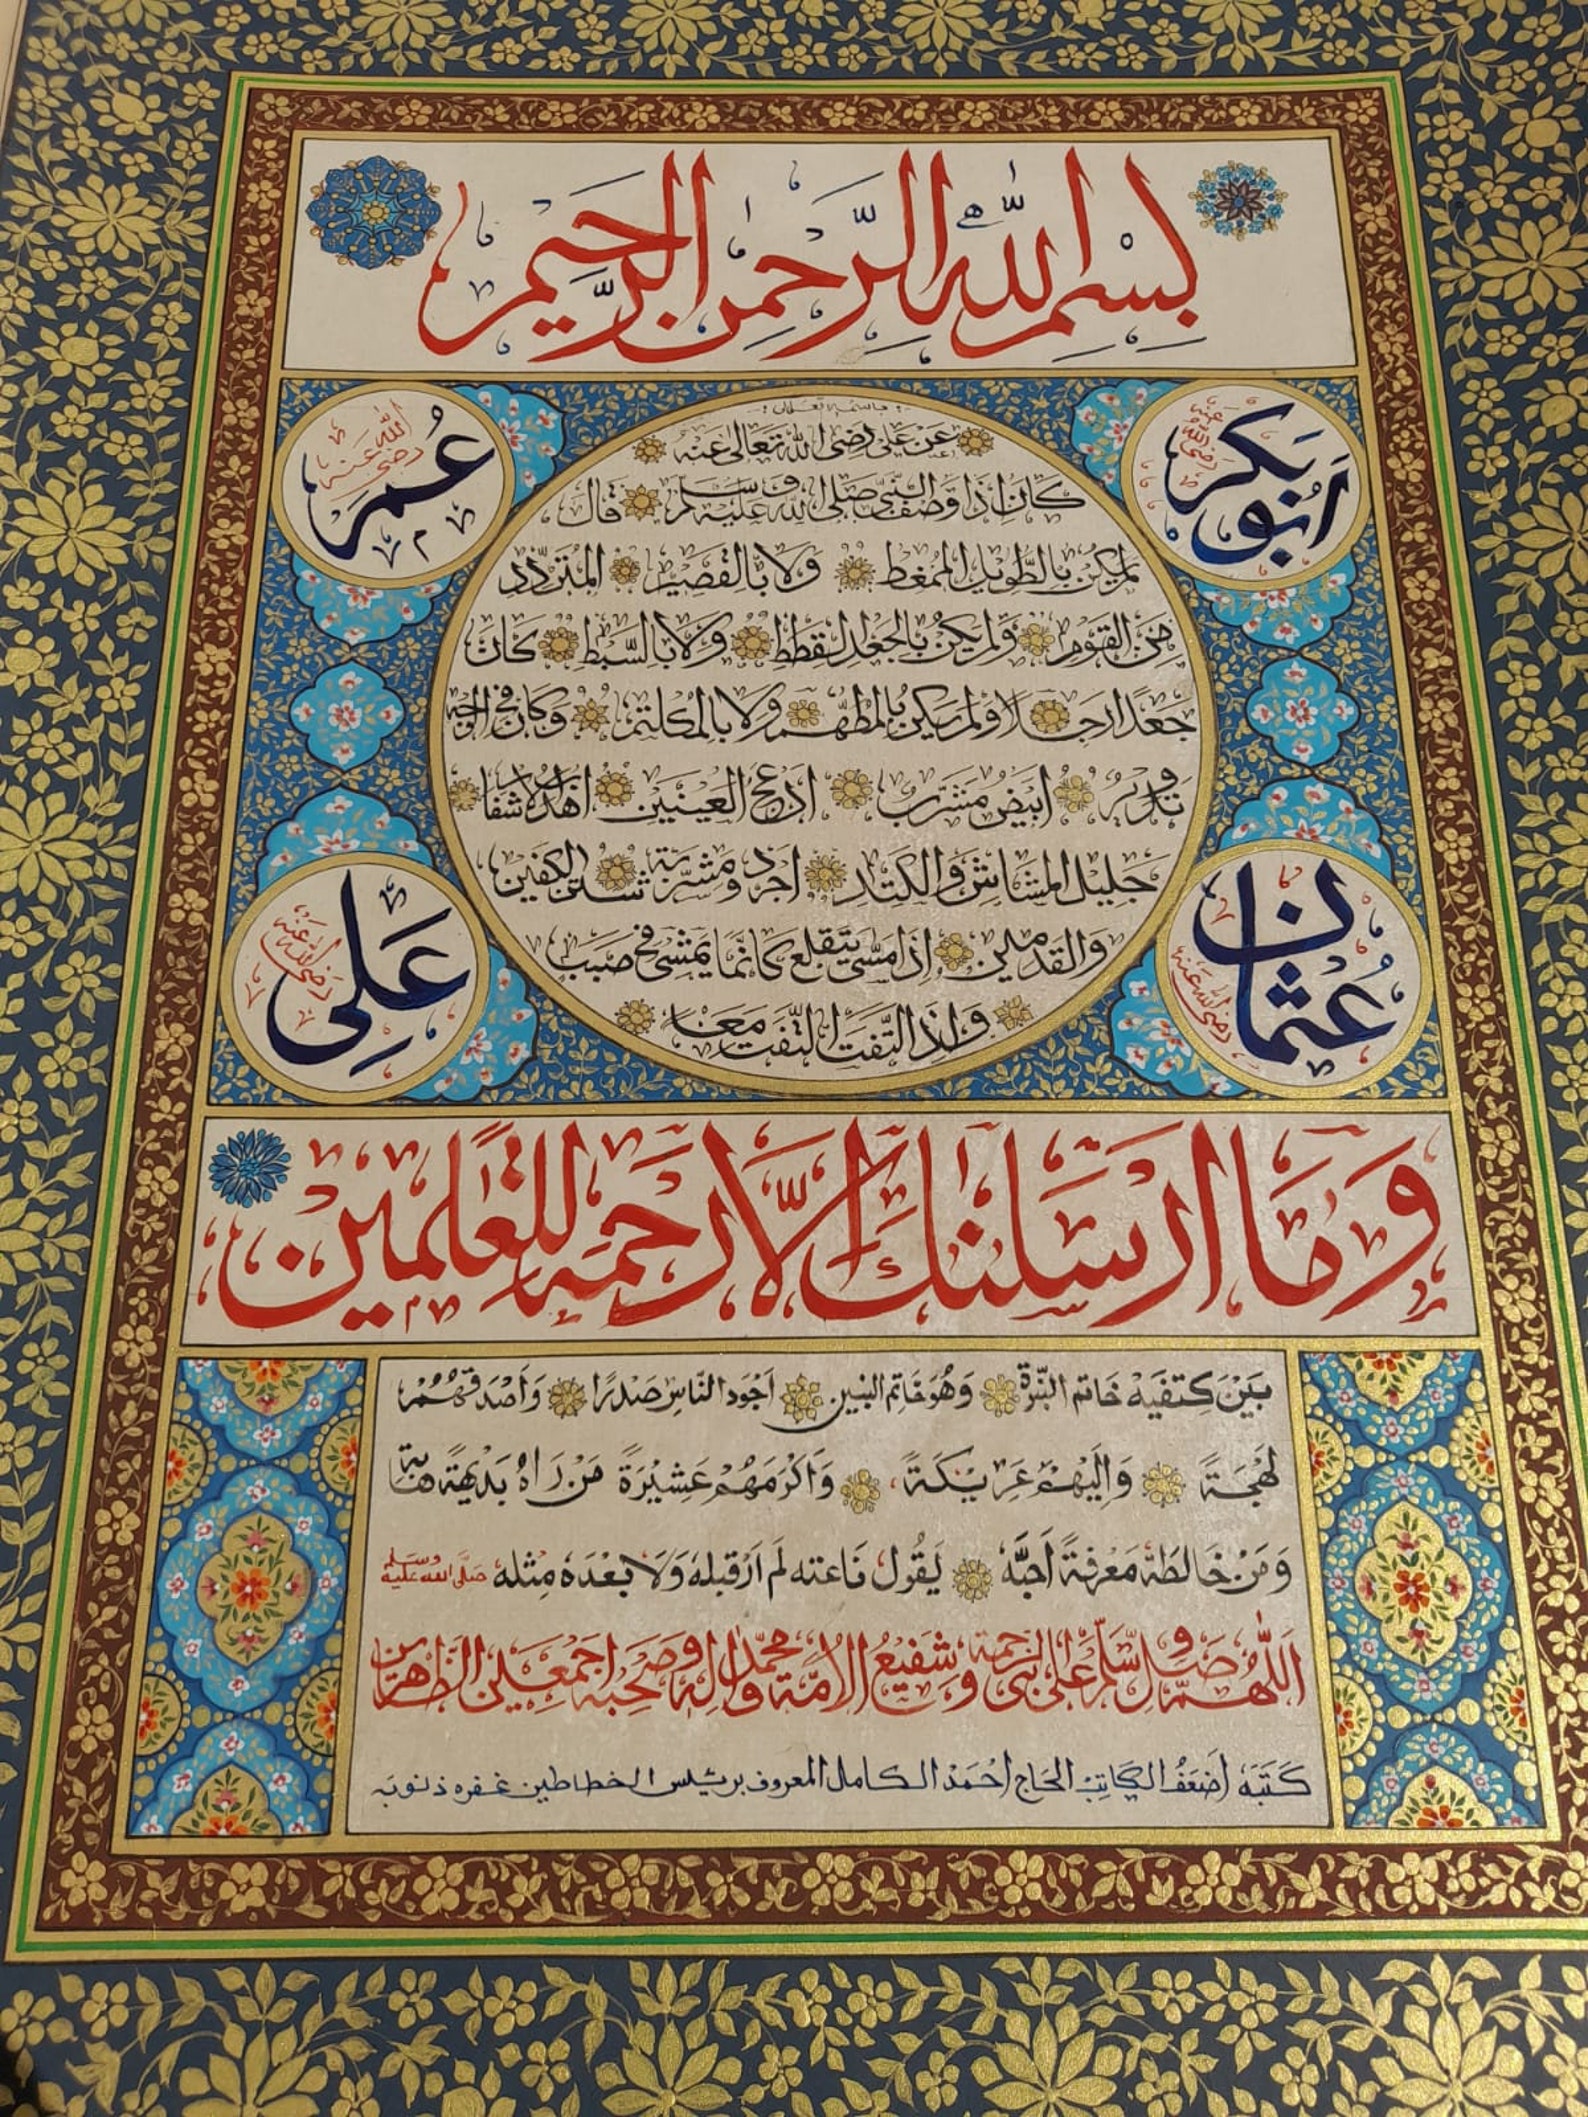 بِسْمِ اللّٰهِ الرَّحْمٰنِ الرَّحِيْمِ
اَبُو بَكَر رضي الله عنه
عُمَر رضي الله عنه
عَنْ عَلى رَضِى اللّٰه تَعَالى عَنْهُ
كَانَ اِذَا وَصَفَ النَّبِىَّ صَلى اللّٰه عَلَيْه وَسَلم قَالَ
لَمْ يَكُنْ بِالطَّوِيْلِ الْمُمَغَّطِ وَلَا بِالقَصِيْرِ المُتَرَدِّدِ
مِنَ القَوْمِ وَلَمْ يَكُنْ بِالجَعْدِ القَطَطِ وَلَا بِالسَّبْطِ كَانَ
جَعْدًا رَجِلًا وَلَمْ يَكُنْ بِالمُطَهَّمِ وَلَا بِالمُكَلثَمِ وَكَانَ فِى الوَجْه
تَدْوِيْرٌ اَبْيَضُ مُشَرَبٌ اَدْعَجُ العَيْنَيْنِ اَهْدَبُ الاَشْفَار
جَلِيْلُ المُشَاشِ وَالكَتَدِ اَجْرَدُ ومَسْرُبَة شَثنُ الكَفَّيْنِ
وَالقَدَمَيْنِ اِذَا مَشَى يَتَقَلع كَانَّمَا يَمْشِى فِى صَبَبٍ
وَاِذَا التَفَتَ التَفَتَ مَعًا
عُثْمَان رضي الله عنه
عَلِي رضي الله عنه
وَمَا اَرْسَلْنٰكَ اِلَّا رَحْمَةً لِلْعٰلَمِيْنَ
بَيْنَ كِتفَيْهِ خَاتم النّبوّة وَهُوَ خَاتِم النبيين اَجْوَد النَّاسِ صَدْرًا وَاَصْدَقهُمْ
لهْجَةً وَاَليَنهُمْ عَرِيْكَةً وَاَكْرَمَهُمْ عَشِيْرَةً مَنْ رَاهُ بَدِيْهَةً هَابَهُ
وَمَنْ خَالطَهُ مَعْرِفَةً اَحَبَّهُ يَقُول نَاعته لَم اَرَ قبله وَلَا بَعْدَه مِثله صَلَّى الله عليه وسلم
اَللّٰهُمَّ صَلِّ وسَلِّمْ عَلى نَبى الرحمة وَشَفِيْعِ الاُمَّة مُحَمَّدٍ وَاٰلِهِ وَصَحْبِهِ اَجْمَعِيْنَ الطَّاهِرِيْنَ
كَتَبَهُ اَضْعَفُ الكَاتِبْ الحَاج اَحْمَدْ الكامل المعروف برئيس الخطاطين غفره ذنوبه